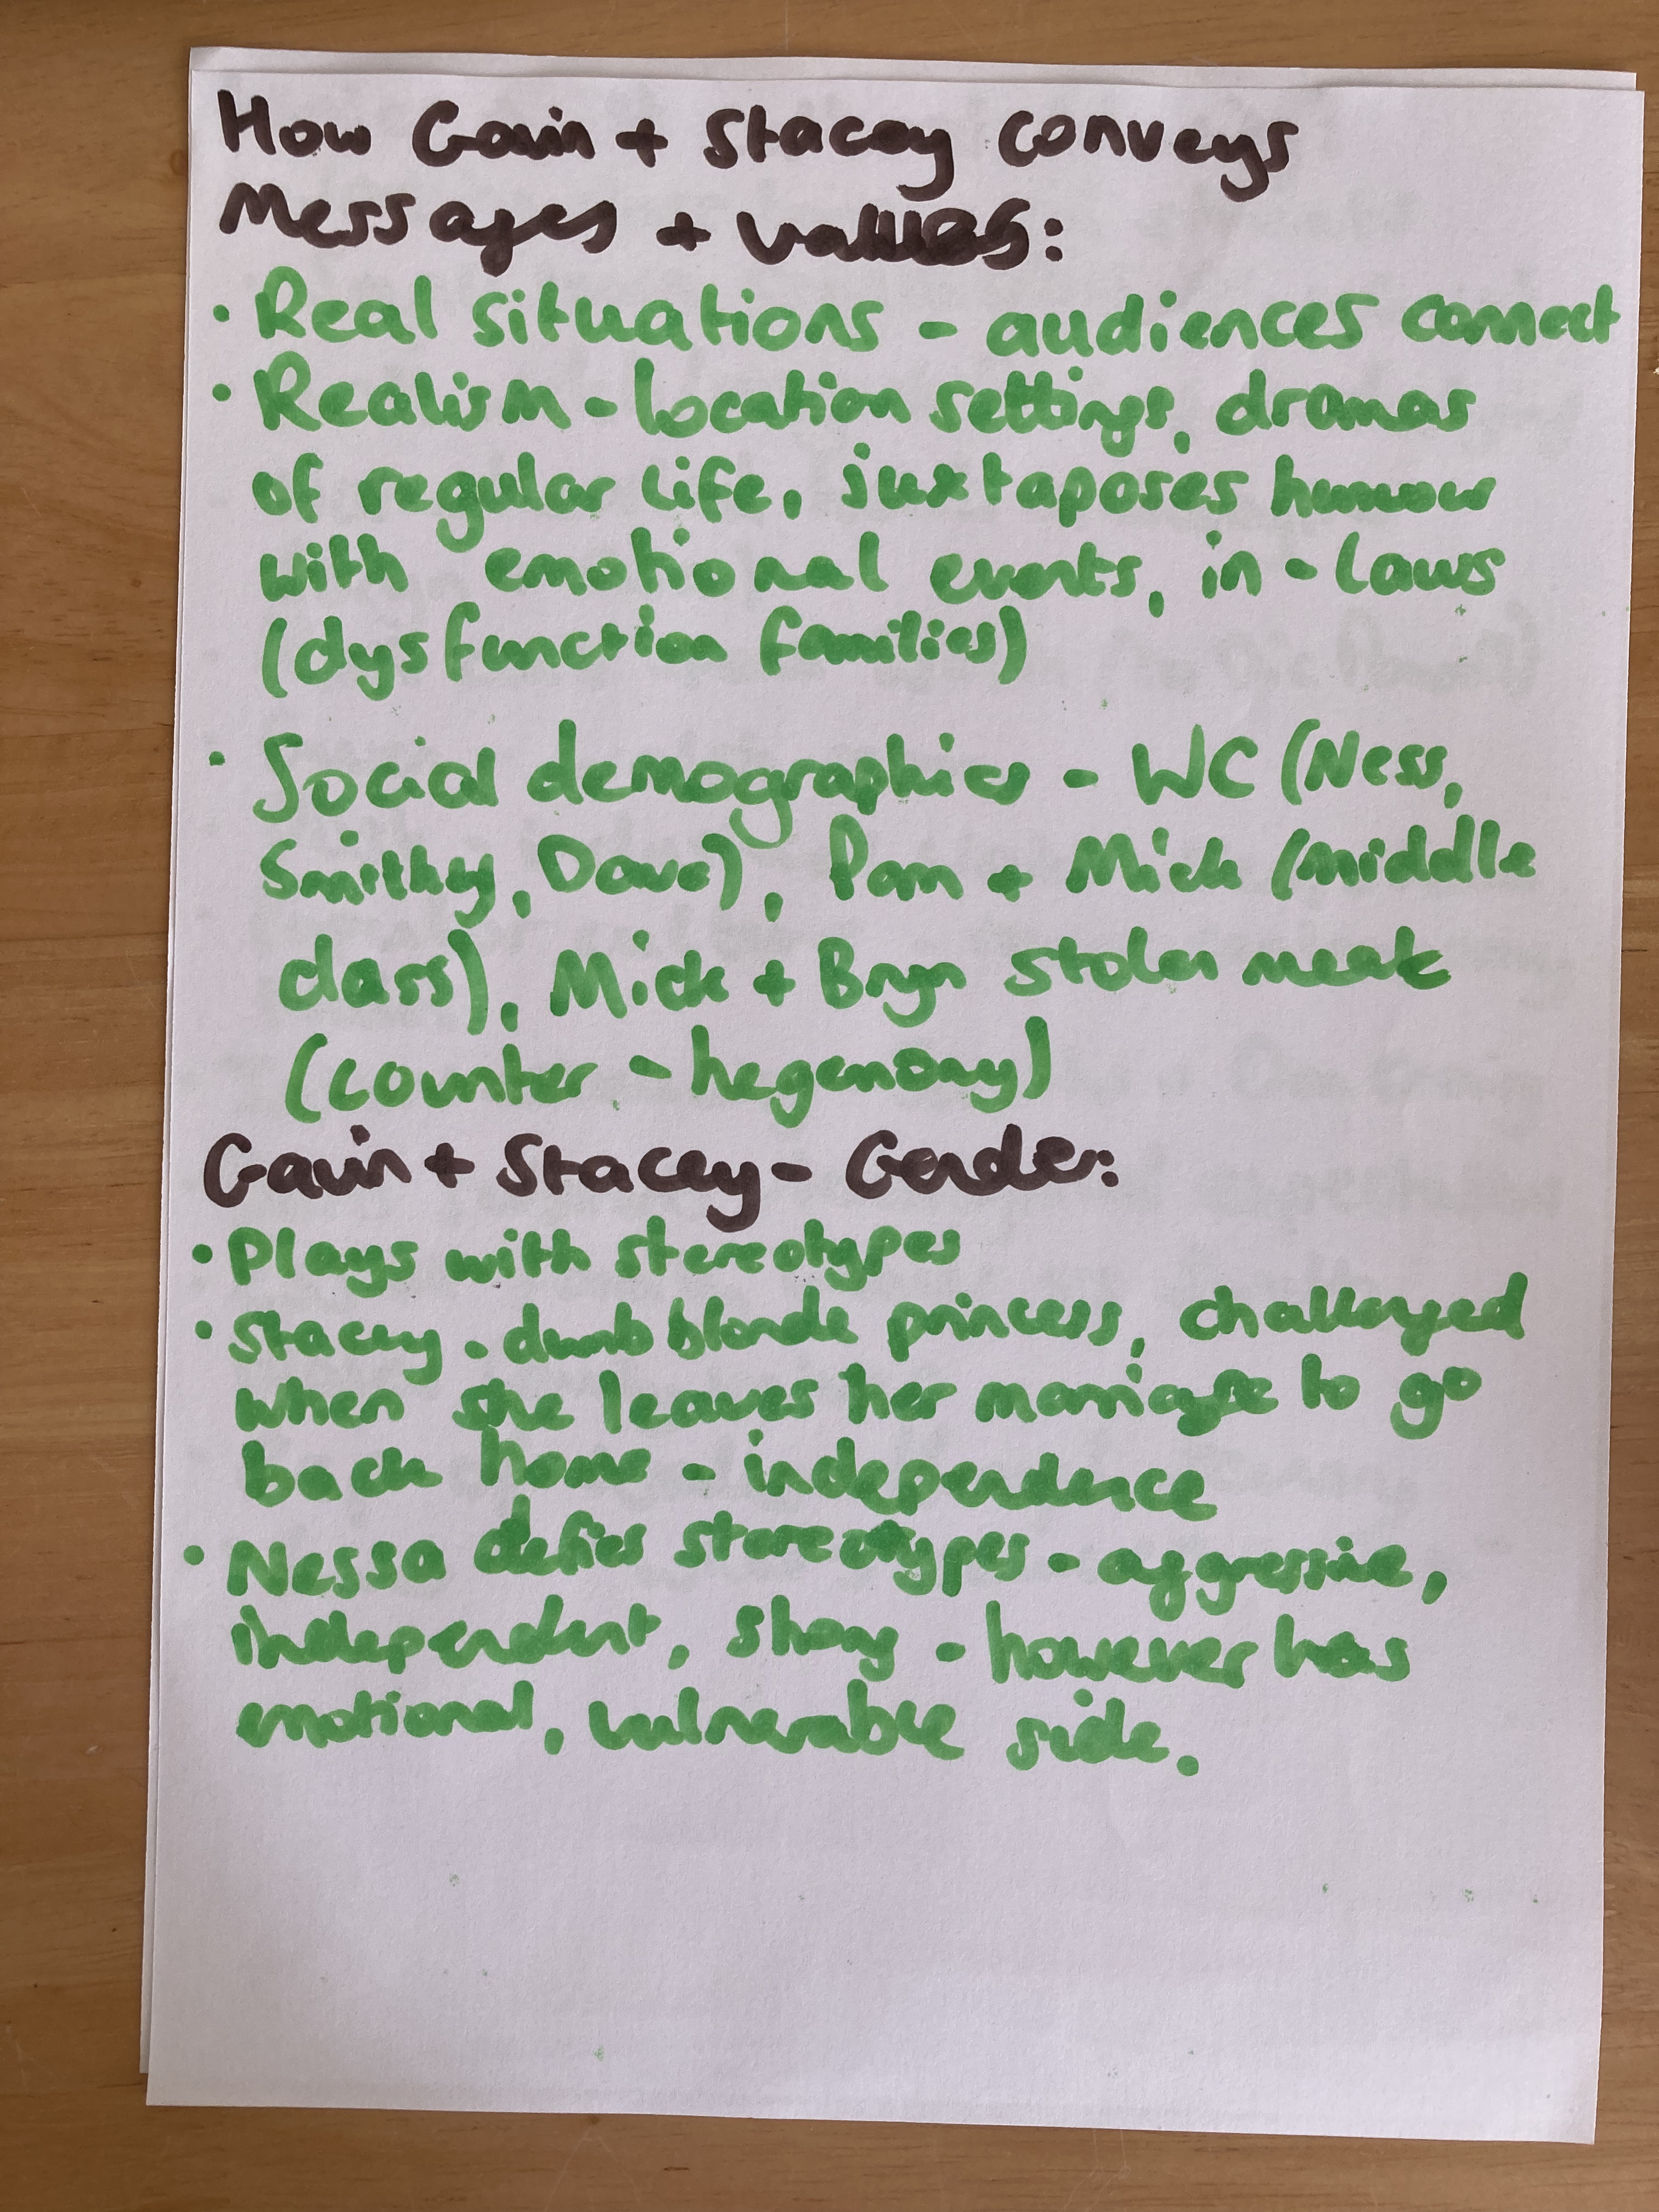 How Gavin + Stacey conveys
Messages + values:
• Real situations - audiences connect
• Realism - location settings, dramas
of regular life, juxtaposes humour
with emotional events, in-laws
(dysfunction families)
• Social demographics - WC (Ness,
Smithy, Dave), Pam + Mick (middle
class), Mick + Bryn stolen meat
(counter - hegemony)
Gavin + Stacey - Gender:
• Plays with stereotypes
• Stacey - dumb blonde princess, challenged
when she leaves her marriage to go
back home - independence
• Nessa defies stereotypes - aggressive,
independent, strong - however has
emotional, vulnerable side.